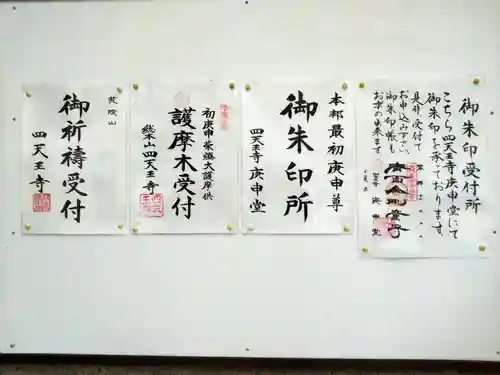 御朱印受付所
こちら四天王寺庚申堂にて
御朱印を承っております。
是非受付で
お申し込み下さい。
御朱印帳も
お求め出来ます
庚申堂
本邦最初庚申尊
御朱印所
四天王寺庚申堂
初庚申柴燈大護摩供
護摩木受付
総本山四天王寺
荒陵山
御祈禱受付
四天王寺